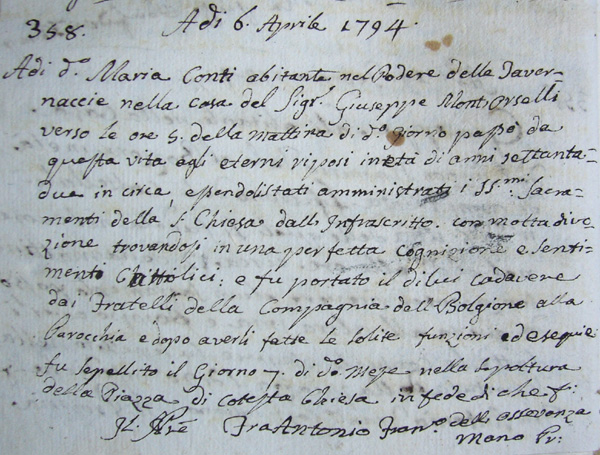 358. Adi 6. Aprile 1794.
Adi d.o Maria Conti abitante nel Podere della Taver=
naccie nella Casa del Sigr. Giuseppe Mont Orselli
verso le ore 5. della mattina di d.o giorno passò da
questa vita agli eterni riposi in età di anni settanta=
due in circa, essendoli stati amministrati i SS.mi Sacra=
menti della S. Chiesa dall Infrascritto. con molta divo=
zione trovandosi in una perfetta cognizione e senti=
menti Chattolici; e fu portato il di lui cadavere
dai Fratelli della Compagnia dell Bolgione alla
Parocchia e dopo averli fatte le solite funzioni ed esequie
fu sepellito il Giorno 7. di d.o Mese nella sepoltura
della Piazza di Cotesta Chiesa in fede di che f:
Fra Antonio Fran.o dell osservanza
Mano Pr: